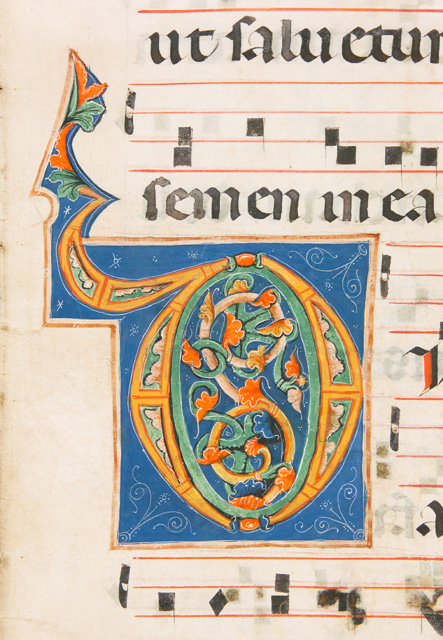 ut saluetur
semen in ea
D